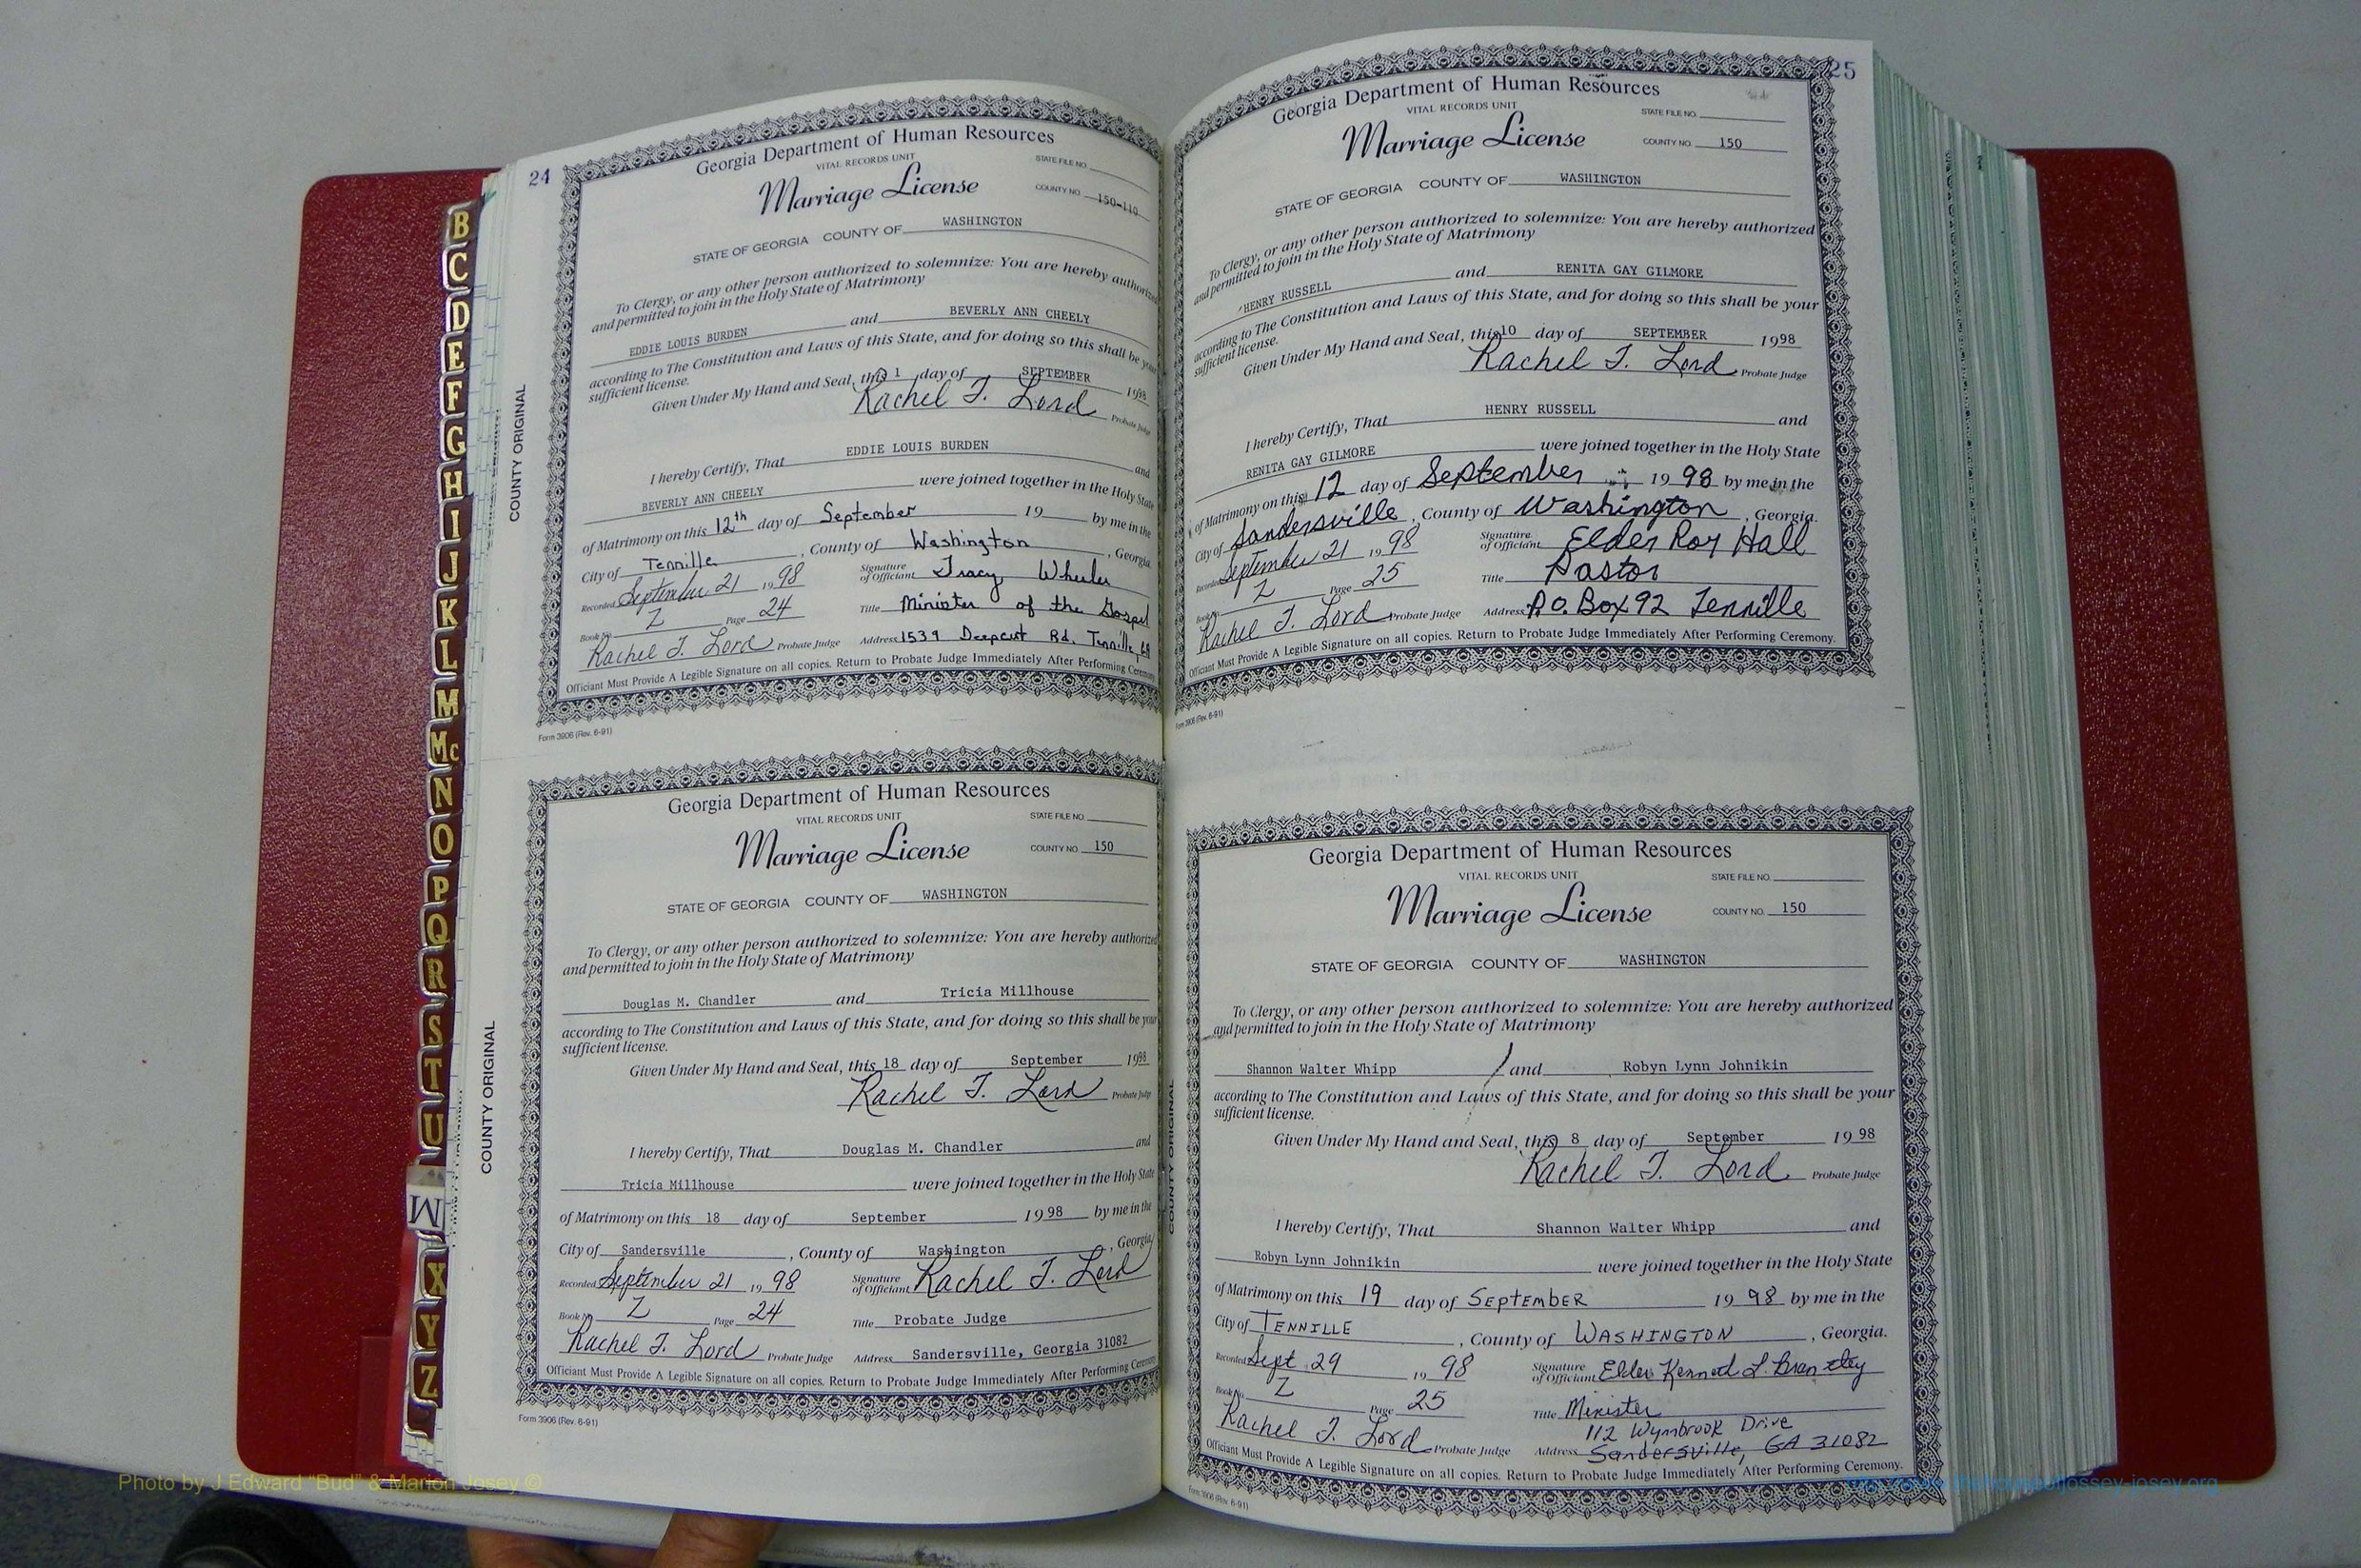 24
Georgia Department of Human Resources
VITAL RECORDS UNIT
STATE FILE NO.
Marriage License
COUNTY NO. 150-110
STATE OF GEORGIA COUNTY OF WASHINGTON
To Clergy, or any other person authorized to solemnize: You are hereby authorized
and permitted to join in the Holy State of Matrimony
EDDIE LOUIS BURDEN and BEVERLY ANN CHEELY
according to The Constitution and Laws of this State, and for doing so this shall be your
sufficient license.
Given Under My Hand and Seal, this 1 day of SEPTEMBER 1998
Rachel T. Lord Probate Judge
I hereby Certify, That EDDIE LOUIS BURDEN and
BEVERLY ANN CHEELY were joined together in the Holy State
of Matrimony on this 12th day of September 19 by me in the
City of Tennille, County of Washington, Georgia
Recorded September 21 1998 Signature of Officiant Tracy Wheeler
Book No. Z Page 24 Title Minister of the Gospel
Rachel T. Lord Probate Judge Address 1539 Deepcut Rd. Tennille, GA
Officiant Must Provide A Legible Signature on all copies. Return to Probate Judge Immediately After Performing Ceremony
Form 3906 (Rev. 6-91)
COUNTY ORIGINAL
Georgia Department of Human Resources
VITAL RECORDS UNIT
STATE FILE NO.
Marriage License
COUNTY NO. 150
STATE OF GEORGIA COUNTY OF WASHINGTON
To Clergy, or any other person authorized to solemnize: You are hereby authorized
and permitted to join in the Holy State of Matrimony
Douglas M. Chandler and Tricia Millhouse
according to The Constitution and Laws of this State, and for doing so this shall be your
sufficient license.
Given Under My Hand and Seal, this 18 day of September 1998
Rachel T. Lord Probate Judge
I hereby Certify, That Douglas M. Chandler and
Tricia Millhouse were joined together in the Holy State
of Matrimony on this 18 day of September 1998 by me in the
City of Sandersville, County of Washington, Georgia
Recorded September 21 1998 Signature of Officiant Rachel T. Lord
Book No. Z Page 24 Title Probate Judge
Rachel T. Lord Probate Judge Address Sandersville, Georgia 31082
Officiant Must Provide A Legible Signature on all copies. Return to Probate Judge Immediately After Performing Ceremony
Form 3906 (Rev. 6-91)
COUNTY ORIGINAL
25
Georgia Department of Human Resources
VITAL RECORDS UNIT
STATE FILE NO.
Marriage License
COUNTY NO. 150
STATE OF GEORGIA COUNTY OF WASHINGTON
To Clergy, or any other person authorized to solemnize: You are hereby authorized
and permitted to join in the Holy State of Matrimony
HENRY RUSSELL and RENITA GAY GILMORE
according to The Constitution and Laws of this State, and for doing so this shall be your
sufficient license.
Given Under My Hand and Seal, this 10 day of SEPTEMBER 1998
Rachel T. Lord Probate Judge
I hereby Certify, That HENRY RUSSELL and
RENITA GAY GILMORE were joined together in the Holy State
of Matrimony on this 12 day of September 1998 by me in the
City of Sandersville, County of Washington, Georgia.
Recorded September 21 1998 Signature of Officiant Elder Roy Hall
Book No. Z Page 25 Title Pastor
Rachel T. Lord Probate Judge Address P.O. Box 92 Tennille
Officiant Must Provide A Legible Signature on all copies. Return to Probate Judge Immediately After Performing Ceremony.
Form 3906 (Rev. 6-91)
Georgia Department of Human Resources
VITAL RECORDS UNIT
STATE FILE NO.
Marriage License
COUNTY NO. 150
STATE OF GEORGIA COUNTY OF WASHINGTON
To Clergy, or any other person authorized to solemnize: You are hereby authorized
and permitted to join in the Holy State of Matrimony
Shannon Walter Whipp and Robyn Lynn Johnikin
according to The Constitution and Laws of this State, and for doing so this shall be your
sufficient license.
Given Under My Hand and Seal, this 8 day of September 1998
Rachel T. Lord Probate Judge
I hereby Certify, That Shannon Walter Whipp and
Robyn Lynn Johnikin were joined together in the Holy State
of Matrimony on this 19 day of SEPTEMBER 1998 by me in the
City of TENNILLE, County of WASHINGTON, Georgia.
Recorded Sept 29 1998 Signature of Officiant Elder Kenneth L. Brantley
Book No. Z Page 25 Title Minister
112 Wynnbrook Drive
Rachel T. Lord Probate Judge Address Sandersville, GA 31082
Officiant Must Provide A Legible Signature on all copies. Return to Probate Judge Immediately After Performing Ceremony.
Form 3906 (Rev. 6-91)
COUNTY ORIGINAL
B
C
D
E
F
G
H
I
J
K
L
M
Mc
N
O
P
Q
R
S
T
U
X
Y
Z
Photo by J Edward "Bud" & Marion Josey ©
http://www.thehouseofjossey-josey.org